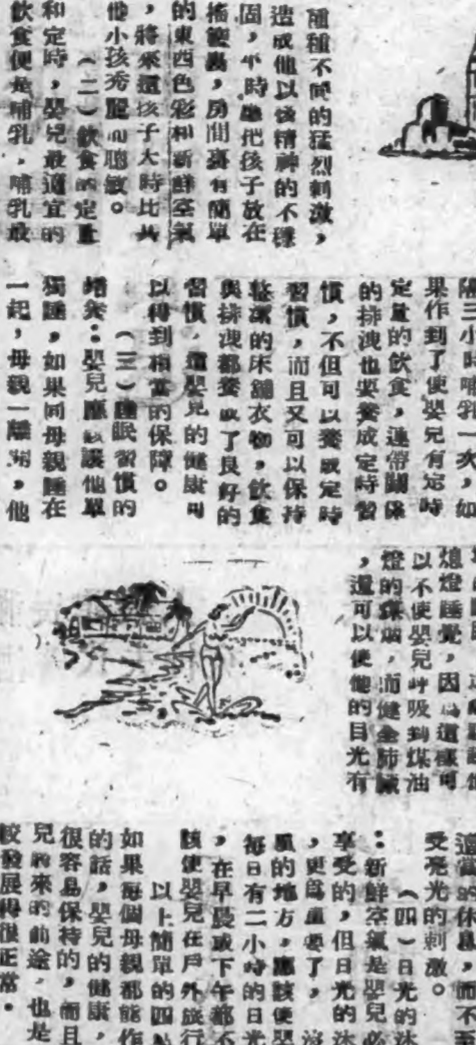 種不同的猛烈刺激，
造成他以後精神的不穩
固，小時應把孩子放在
搖籃裏，房間裏有簡單
的東西色彩和新鮮空氣
，將來這孩子大時比其
他小孩秀麗而聰敏。
（二）飲食的定量
和定時，嬰兒最適宜的
飲食便是哺乳，哺乳最
隔三小時哺乳一次，如
果作到了使嬰兒有定時
定量的飲食，連帶關係
的排洩也要養成定時習
慣，不但可以養成定時
習慣，而且又可以保持
整潔的床舖衣物，飲食
與排洩都養成了良好的
習慣，這嬰兒的健康可
以得到相當的保障。
（三）睡眠習慣的
培養：嬰兒應該讓他單
獨睡，如果同母親睡在
一起，母親一離開，他
熄燈睡覺，因為這樣可
以不使嬰兒呼吸到煤油
燈的煤烟，而健全肺臟
，還可以使他的目光有
適當的休息，而不至
受亮光的刺激。
（四）日光的沐
：新鮮空氣是嬰兒必
享受的，但日光的沐
，更爲重要了，
風的地方，應該使嬰
每日有二小時的日光
，在早晨或下午都不
該使嬰兒在戶外旅行
以上簡單的四點
如果每個母親都能作
的話，嬰兒的健康，
很容易保持的，而且
兒將來的前途，也是
較發展得很正常。